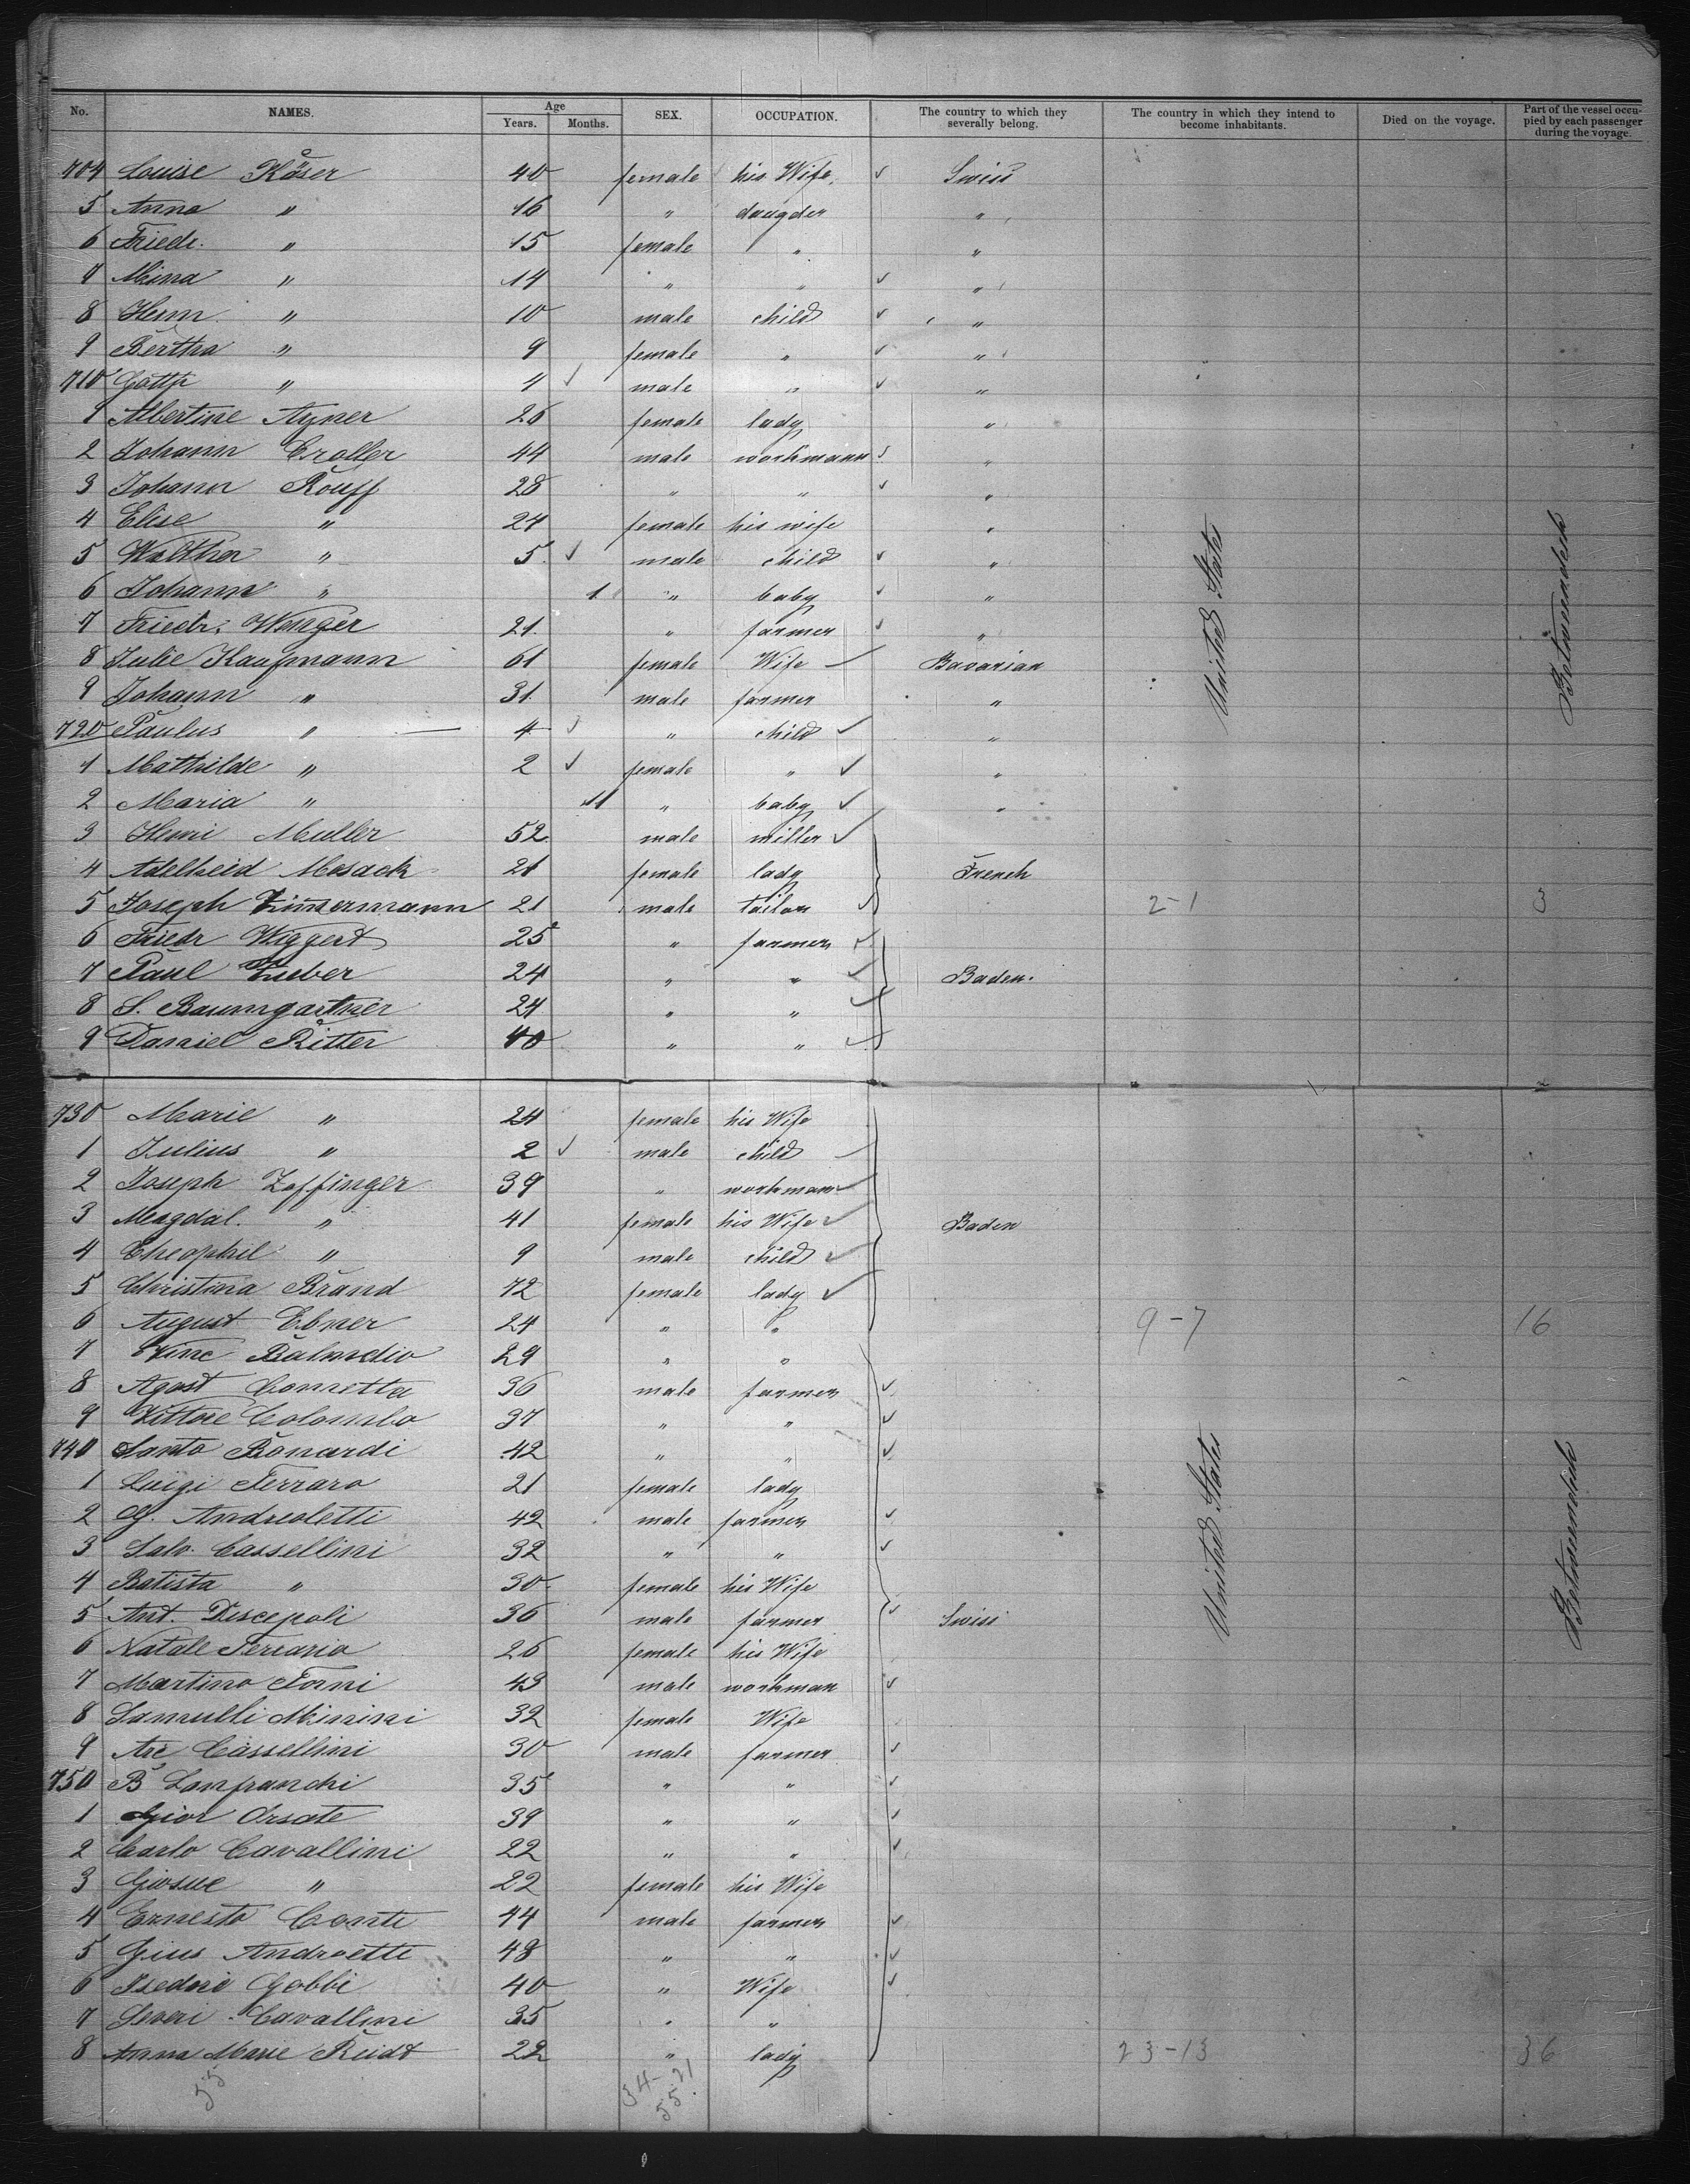 No. NAMES. Age Years. Months. SEX. OCCUPATION. The country to which they severally belong. The country in which they intend to become inhabitants. Died on the voyage. Part of the vessel occupied by each passenger during the voyage.
704 Louise Käser 40 female his Wife Swiss
5 Anna " 16 " daugder "
6 Friedr. " 15 female " "
7 Mina " 14 " " "
8 Herm " 10 male child "
9 Bertha " 9 female " "
710 " 4 male " "
1 Albertine 26 female lady "
2 Johann Croller 44 male workmann "
3 Johann Rouff 28 " " "
4 Elise " 24 female his wife "
5 Walther " 5 male child "
6 Johann " 1 " baby "
7 Friedr. Wenger 21 " farmer "
8 Julie Kaufmann 61 female Wife Bavarian
9 Johann " 31 male farmer "
720 Paulus " 4 " child "
1 Mathilde " 2 female " "
2 Maria " 11 " baby "
3 Henri Muller 52 male miller
4 Adelheid Mosack 21 female lady French
5 Joseph Zimmermann 21 male tailor 2-1 3
6 Friedr Wiggert 25 " farmer
7 Paul Zieber 24 " " Baden.
8 S. Baumgartner 24 " "
9 Daniel Ritter 40 " "
United States
730 Marie " 24 female his Wife
1 Julius " 2 male child
2 Joseph Zoffinger 39 " workman
3 Magdal. " 41 female his Wife Baden
4 Theophil " 9 male child
5 Christina Brand 72 female lady
6 August Ebner 24 " " 9-7 16
7 Balmedio 29 " "
8 Agost Cometta 36 male farmer
9 Vittore Colombo 37 " "
740 Santo Bonardi 42 " "
1 Luigi Ferraro 21 female lady
2 G. Andreoletti 42 male farmer
3 Salv. Cassellini 32 " "
4 Batista " 30 female his Wife
5 Ant. Discepoli 36 male farmer Swiss
6 Natale Ferrario 26 female his Wife
7 Martino Forni 43 male workman
8 Minini 32 female Wife
9 Cassellini 30 male farmer
750 B Lanfranchi 35 " "
1 Gior Orsate 39 " "
2 Carlo Cavallini 22 " "
3 Giosue " 22 female his Wife
4 Ernesto Conti 44 male farmer
5 Gius Androetti 48 " "
6 Isedore Gobbi 40 " Wife
7 Severi Cavallini 35 " "
8 Anna Marie Reidt 22 " lady 23-13 36
United States
55 34-21
55